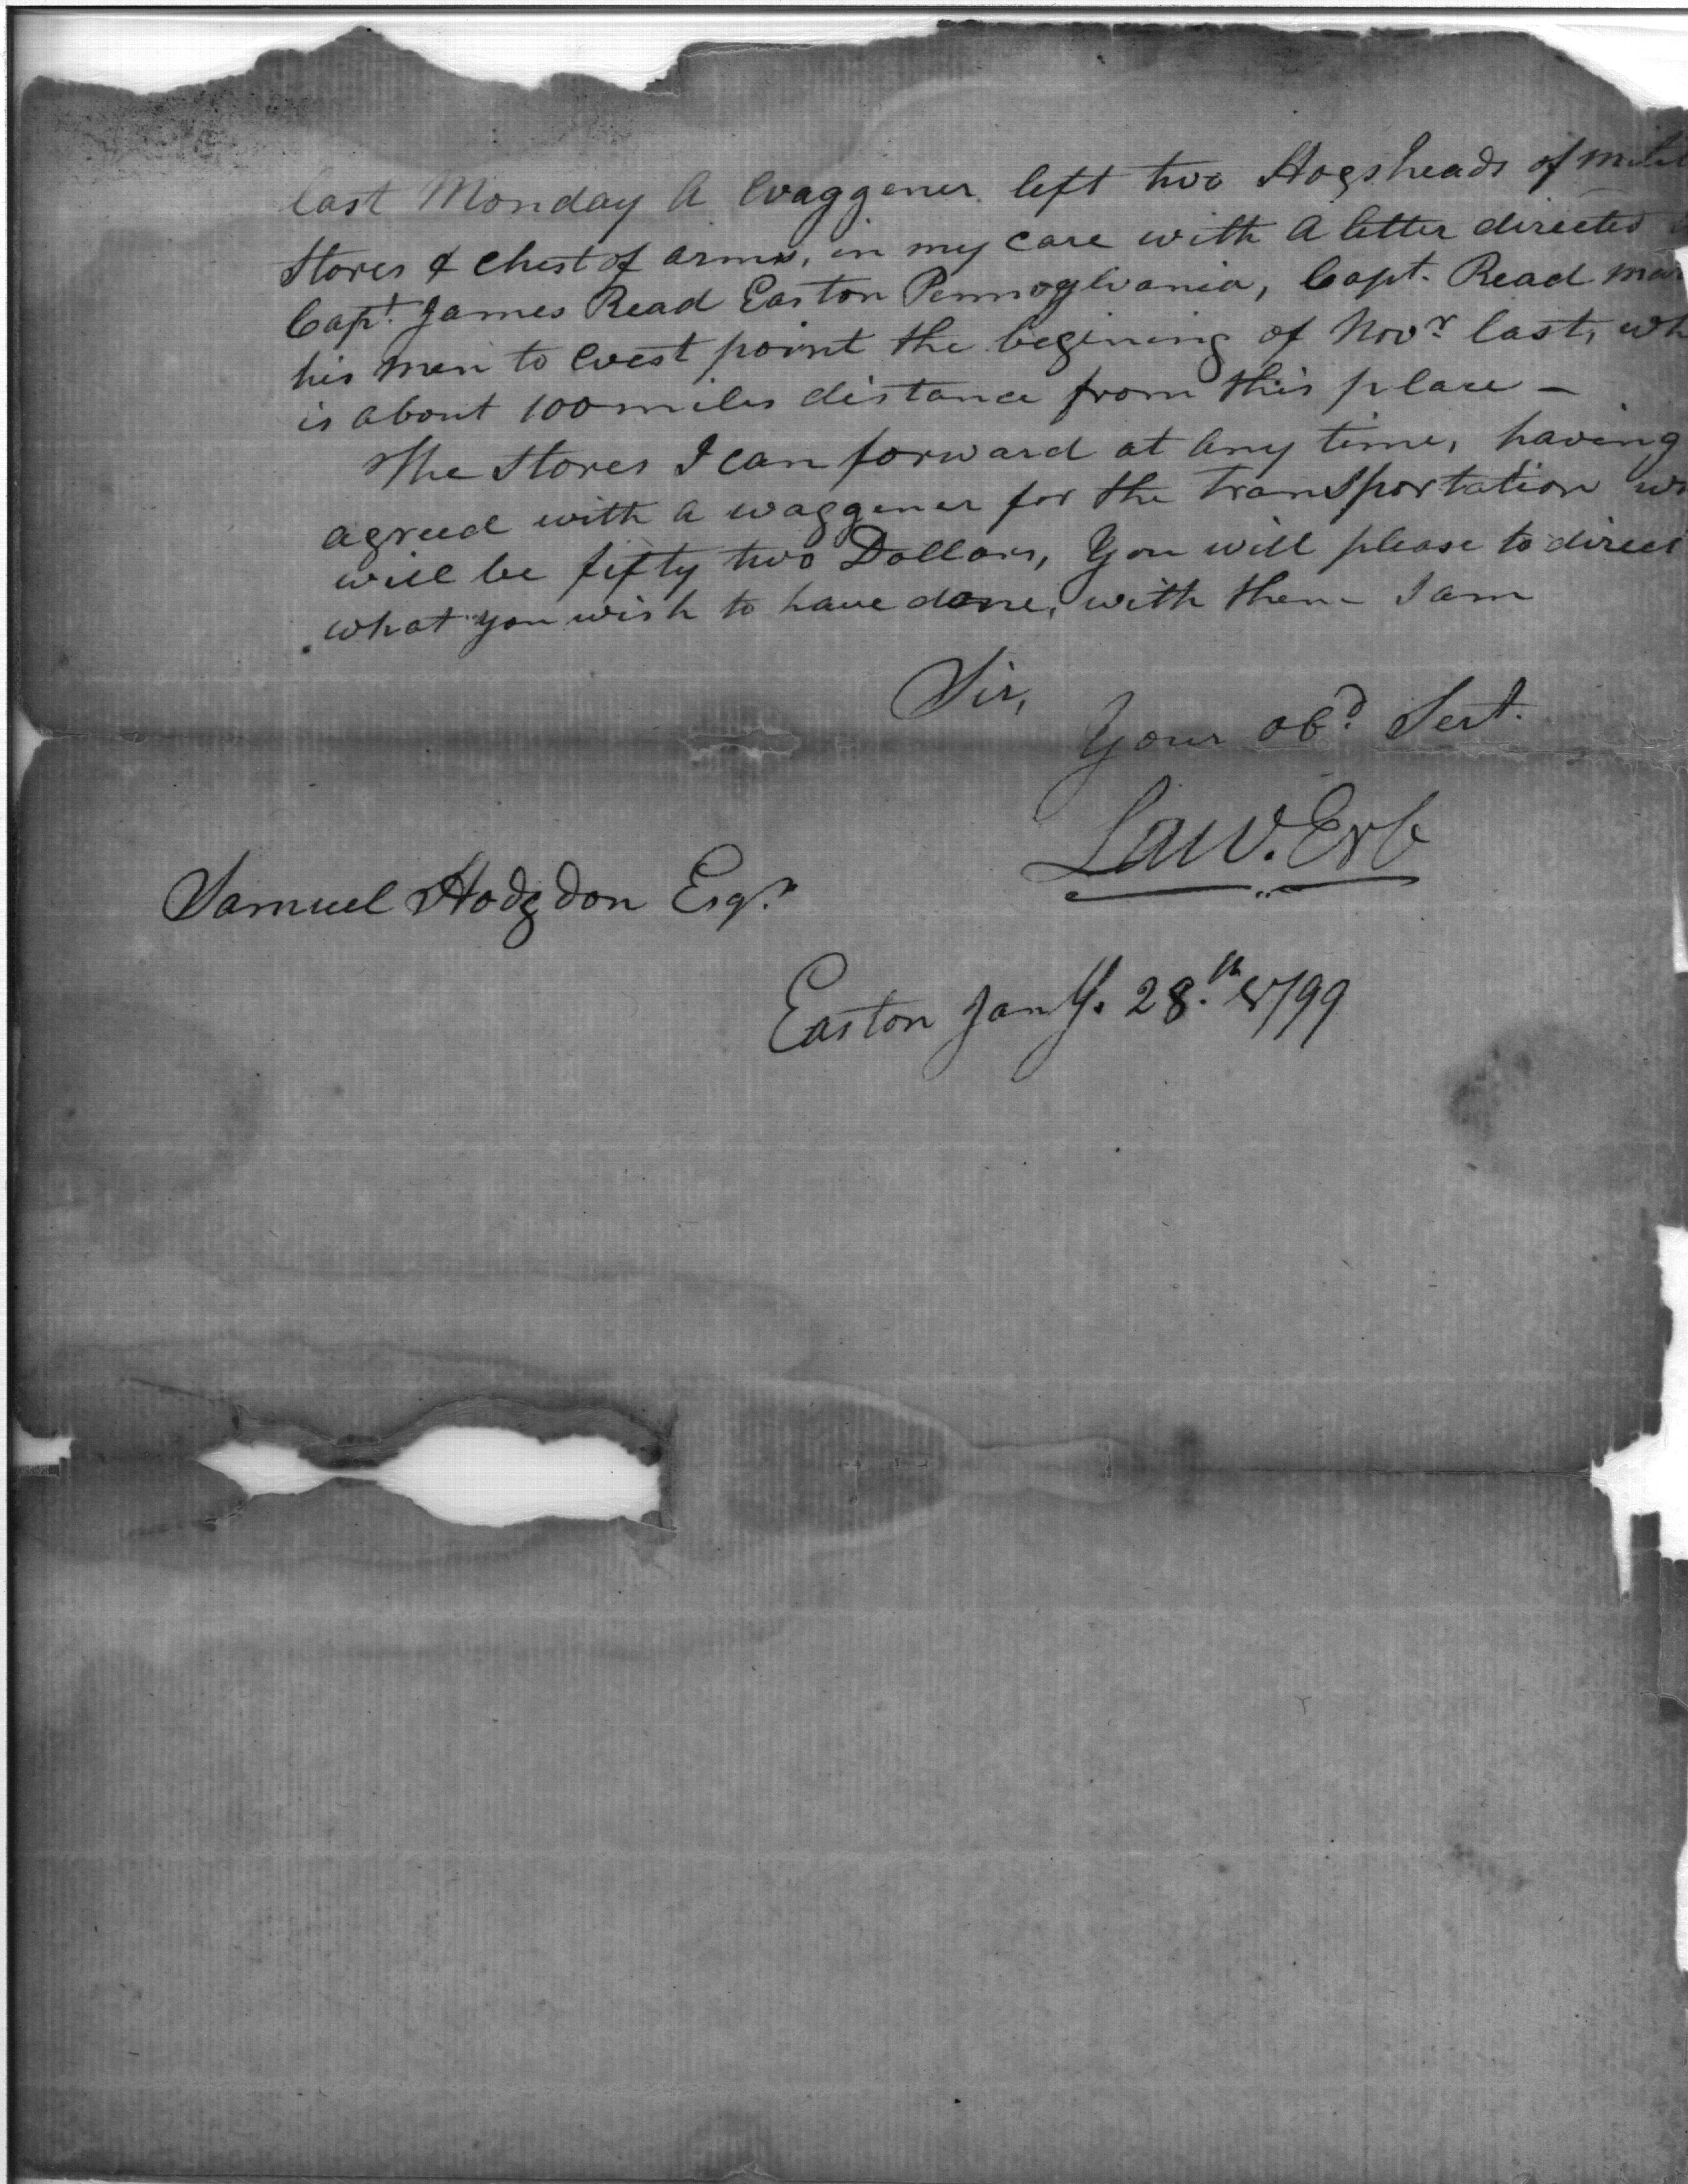 last Monday A Waggener left two Hogsheads of
Stores & Chest of arms, in my Care with A letter directed
Capt. James Read Easton Pennsylvania, Capt. Read
his men to West point the begining of Novr last,
is about 100 miles distance from this place –
The Stores I can forward at any time, having
agreed with a waggener for the transportation
will be fifty two Dollars, You will please to direct
what you wish to have done, with them I am
Sir,
Your obd. Sert.
Law. Erb
Samuel Hodgdon Esqr.
Easton Jany. 28.th 1799